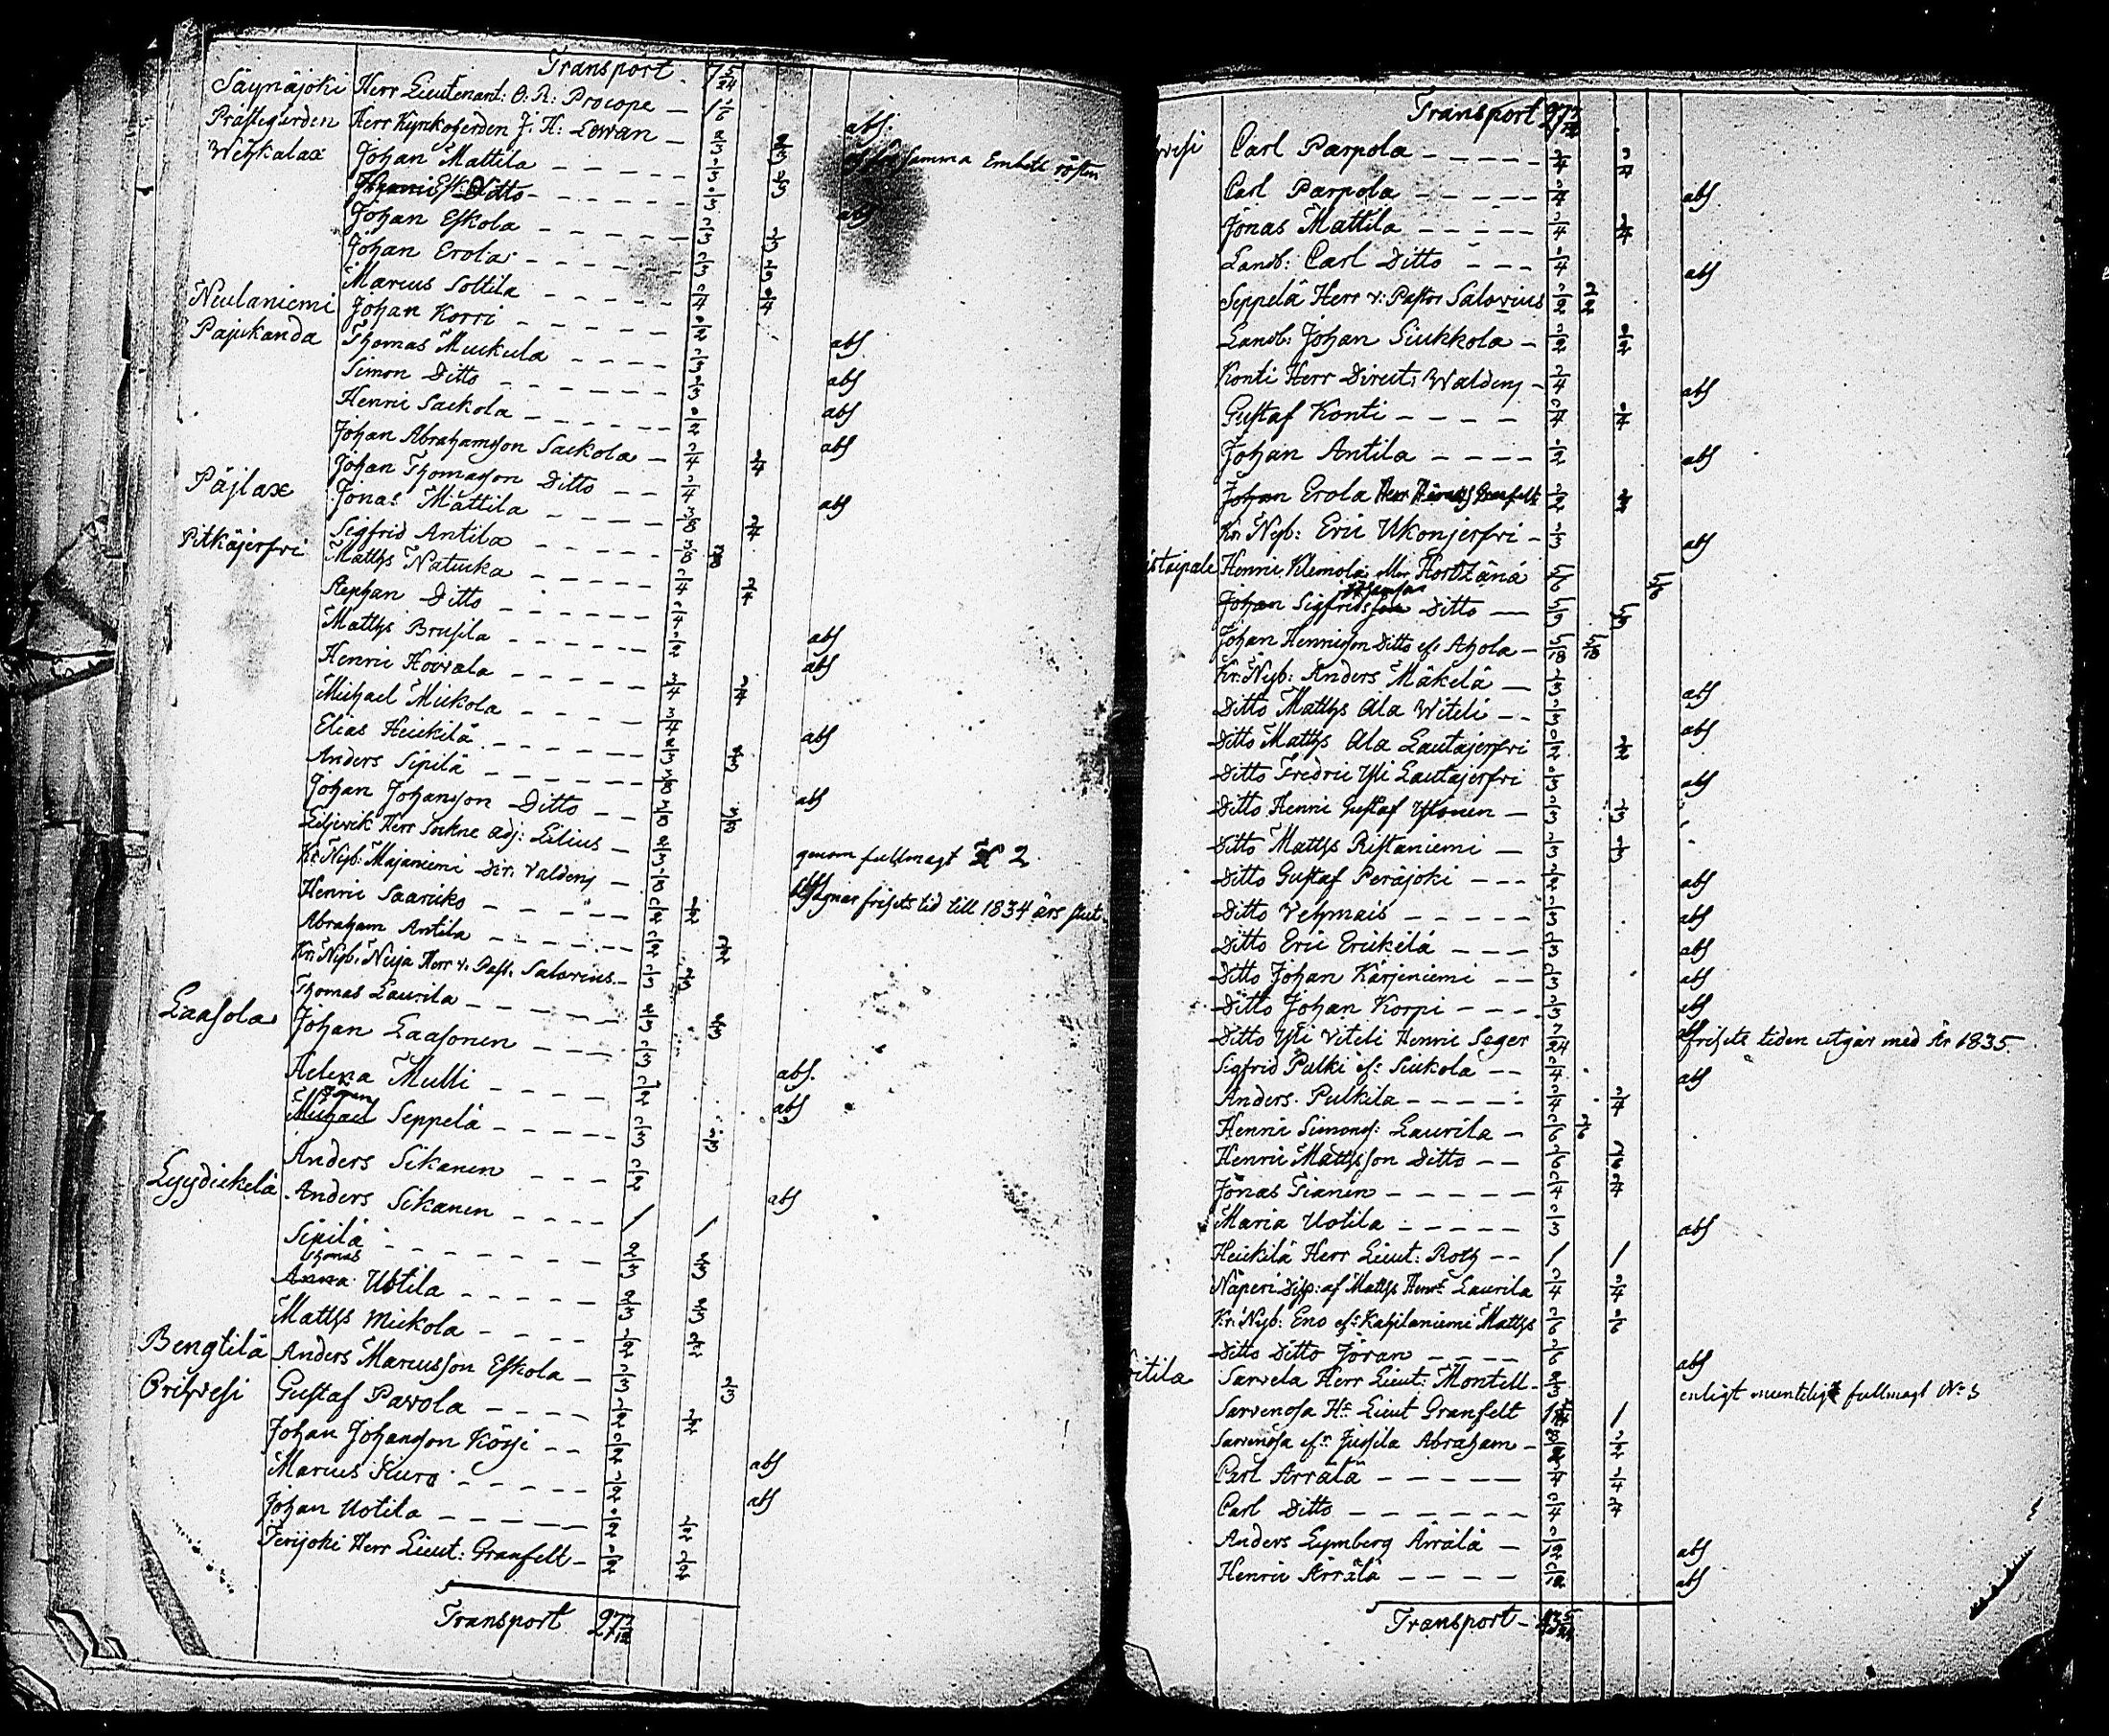 Transport 7 5/24
Säynäjoki Herr Lieutenant: O: R: Procope — 1 1/6
Prästegården Herr Kyrkoherden J: H: Lowan — 2/3 2/3 abs:
Wehkalax Johan Mattila 1/3 1/3 samma Embete rösten
Ditto 1/3
Johan Eskola 1/3 1/3 abs
Johan Erola 1/3 1/3
Marcus Sottila 1/4 1/4
Neulaniemi Johan Korri 1/2
Pajukanda Thomas Muukula 1/3 abs
Simon Ditto 1/3 abs
Henric Sackola 1/2 abs
Johan Abrahamsson Sackola — 1/4 1/4 abs
Johan Thomasson Ditto 1/4
Päjlax Jonas Mattila 3/8 abs
Sigfrid Antila 3/8 3/8
Pitkäjerfvi Matths Natucka 1/4 1/4
Stephan Ditto 1/4
Matths Brusila 1/2 abs
Henric Hovrala 3/4 3/4 abs
Michael Mickola 3/4
Elias Heickilä 2/3 2/3 abs
Anders Sipilä
Johan Johansson Ditto abs
Liljevik Herr Sockne adj: Lilius — 2/3 genom fullmagt № 2
Kr: Nyb: Majaniemi Dir: Valdens —
Henric Saariko 1/2 1/2 frihets tid till 1834 års slut
Abraham Antila 1/2 1/2
Kr: Nyb: Neija Herr v: Past: Salovius — 1/3 1/3
Thomas Laurila 2/3 2/3
Laasola Johan Laasonen 1/3
Helena Mulli 1/2 abs.
Michael Seppelä 1/3 1/3 abs
Anders Sikanen 1/2
Lyydickelä Anders Sikanen 1 1 abs
Sipilä 2/3 2/3
Thomas
Anna Uotila 2/3 2/3
Matths Mickola 1/2 1/2
Bengtilä Anders Marcusson Eskola — 1/3 1/3
Orihvesi Gustaf Pavola 1/2 1/2
Johan Johansson Körji 1/2
Marcus Kuro 1/2 abs
Johan Uotila 1/2 1/2 abs
Terijoki Herr Lieut: Granfelt — 1/2 1/2
Transport 27 7/12
Transport 27 7/12
vesi Carl Parpola 1/4 1/4
Carl Parpola 1/4 abs
Jonas Mattila 1/4 1/4
Landb: Carl Ditto 1/4 abs
Seppelä Herr v: Pastor Salovius 1/2 1/2
Landb: Johan Siukkola — 1/2 1/2
Konti Herr Direct: Waldens — 1/4 abs
Gustaf Konti 1/4 1/4
Johan Antila 1/2 abs
Johan Erola Herr Granfelt 1/2
Kr: Nyb: Eric Ukonjerfvi — 1/3 abs
istaipale Henric Klemola Hortzänä 5/6 5/6
Johan Sigfridsson Ditto — 5/9 5/9
Johan Henricsson Ditto ef: Ahola — 5/18 5/18
Kr: Nyb: Anders Mäkelä — 1/3 abs
Ditto Matths Ala Witeli 1/3 abs
Ditto Matths Ala Lautajerfvi 1/2 1/2
Ditto Fredric Yli Lautajerfvi 1/3 abs
Ditto Henric Gustaf Ylönen — 1/3 1/3
Ditto Matths Ristaniemi — 1/3 1/3
Ditto Gustaf Peräjoki 1/2 abs
Ditto Vehmais 1/3 abs
Ditto Eric Erickelä 1/3 abs
Ditto Johan Kärjeniemi 1/3 abs
Ditto Johan Korpi 1/3 abs
Ditto Yli Viteli Henric Seger frihets tiden utgår med År 1835.
Sigfrid Pulki ef: Siukola 1/4 abs
Anders Pulkila 1/4 1/4
Henric Simons: Laurila — 1/6 1/6
Henric Mattsson Ditto 1/6 1/6
Jonas Tianen 1/4 1/4
Maria Uotila 1/3 abs
Heickilä Herr Lieut: Roth 1 1
Näperi Disp: af Matths Henr: Laurila 1/4 1/4
Kr: Nyb: Eno ef: Kahilaniemi Matths 1/6 1/6
Ditto Ditto Jöran 1/6 abs
itila Sarvela Herr Lieut: Montell — 2/3 enligt muntligt fullmagt № 3
Sarvenosa Hr: Lieut Granfelt 1
Sarvenosa ef: Jussila Abraham — 1/2
Carl Arralä 1/4 1/4
Carl Ditto 1/4 1/4
Anders Lymberg Arralä — 1/2 abs
Henric Arralä abs
Transport — 43 5/24